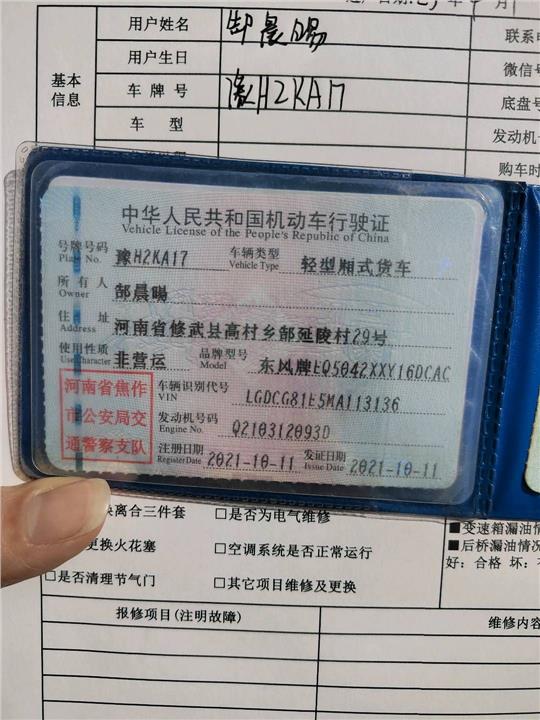 用户姓名 郜晨晹 联系电
用户生日 微信号
基本信息
车牌号 豫H2KA17 底盘号
车型 发动机号
购车时
中华人民共和国机动车行驶证
Vehicle License of the People's Republic of China
号牌号码 Plate No. 豫H2KA17 车辆类型 Vehicle Type 轻型厢式货车
所有人 Owner 郜晨晹
住址 Address 河南省修武县高村乡郜延陵村29号
使用性质 Use Character 非营运 品牌型号 Model 东风牌EQ5042XXY16DCAC
河南省焦作市公安局交通警察支队
车辆识别代号 VIN LGDCG81E5MA113136
发动机号码 Engine No. Q210312093D
注册日期 Register Date 2021-10-11 发证日期 Issue Date 2021-10-11
换离合三件套 □是否为电气维修 ■变速箱漏油情
更换火花塞 □空调系统是否正常运行 ■后桥漏油情况
好：合格 坏：
□是否清理节气门 □其它项目维修及更换
报修项目(注明故障) 维修内容